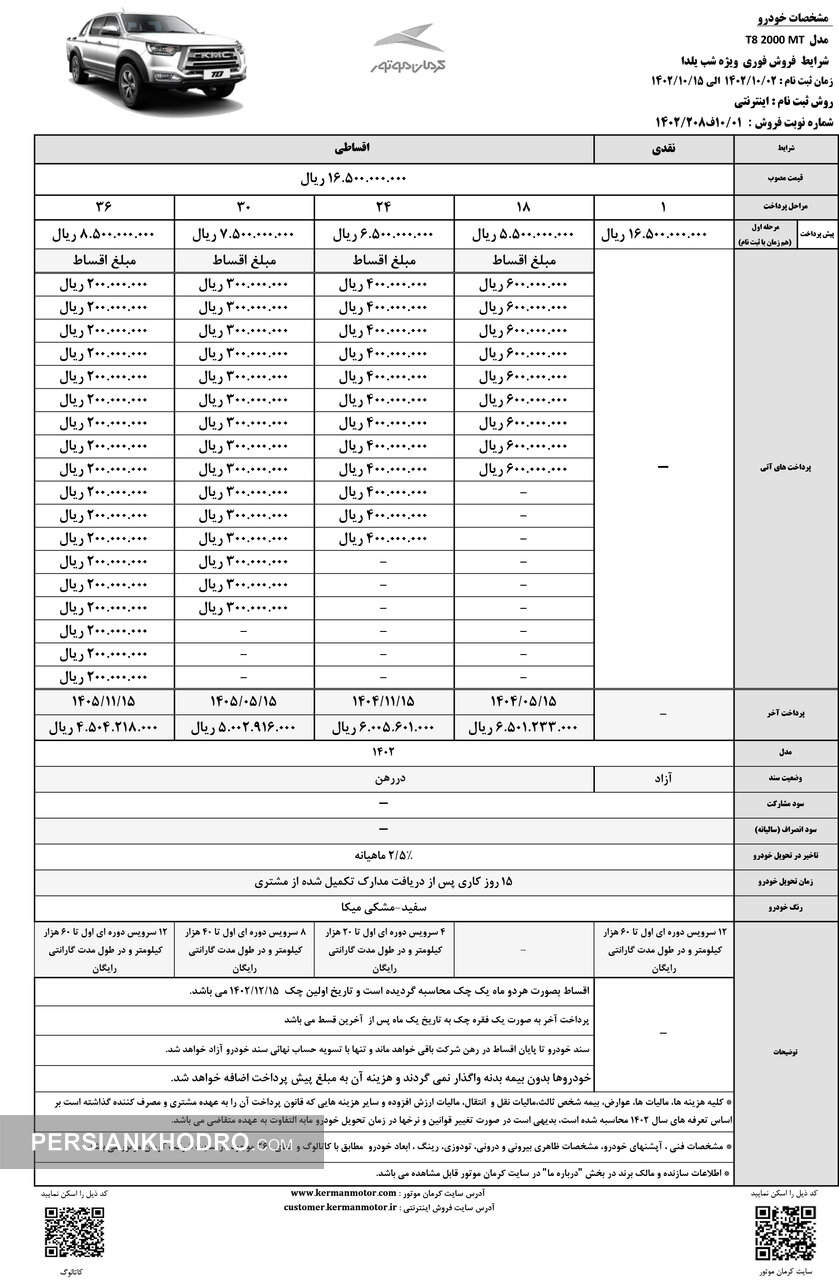 مشخصات خودرو
مدل T8 2000 MT
شرایط فروش فوری ویژه شب یلدا
زمان ثبت نام : ۱۴۰۲/۱۰/۰۲ الی ۱۴۰۲/۱۰/۱۵
روش ثبت نام : اینترنتی
شماره نوبت فروش : ۱۰/۰۱ف۱۴۰۲/۲۰۸
کرمان موتور
KMC
T8
شرایط نقدی اقساطی
قیمت مصوب ۱۶.۵۰۰.۰۰۰.۰۰۰ ریال
مراحل پرداخت ۱ ۱۸ ۲۴ ۳۰ ۳۶
پیش پرداخت مرحله اول (هم زمان با ثبت نام) ۱۶.۵۰۰.۰۰۰.۰۰۰ ریال ۵.۵۰۰.۰۰۰.۰۰۰ ریال ۶.۵۰۰.۰۰۰.۰۰۰ ریال ۷.۵۰۰.۰۰۰.۰۰۰ ریال ۸.۵۰۰.۰۰۰.۰۰۰ ریال
مبلغ اقساط مبلغ اقساط مبلغ اقساط مبلغ اقساط
۶۰۰.۰۰۰.۰۰۰ ریال ۴۰۰.۰۰۰.۰۰۰ ریال ۳۰۰.۰۰۰.۰۰۰ ریال ۲۰۰.۰۰۰.۰۰۰ ریال
۶۰۰.۰۰۰.۰۰۰ ریال ۴۰۰.۰۰۰.۰۰۰ ریال ۳۰۰.۰۰۰.۰۰۰ ریال ۲۰۰.۰۰۰.۰۰۰ ریال
۶۰۰.۰۰۰.۰۰۰ ریال ۴۰۰.۰۰۰.۰۰۰ ریال ۳۰۰.۰۰۰.۰۰۰ ریال ۲۰۰.۰۰۰.۰۰۰ ریال
۶۰۰.۰۰۰.۰۰۰ ریال ۴۰۰.۰۰۰.۰۰۰ ریال ۳۰۰.۰۰۰.۰۰۰ ریال ۲۰۰.۰۰۰.۰۰۰ ریال
۶۰۰.۰۰۰.۰۰۰ ریال ۴۰۰.۰۰۰.۰۰۰ ریال ۳۰۰.۰۰۰.۰۰۰ ریال ۲۰۰.۰۰۰.۰۰۰ ریال
۶۰۰.۰۰۰.۰۰۰ ریال ۴۰۰.۰۰۰.۰۰۰ ریال ۳۰۰.۰۰۰.۰۰۰ ریال ۲۰۰.۰۰۰.۰۰۰ ریال
۶۰۰.۰۰۰.۰۰۰ ریال ۴۰۰.۰۰۰.۰۰۰ ریال ۳۰۰.۰۰۰.۰۰۰ ریال ۲۰۰.۰۰۰.۰۰۰ ریال
۶۰۰.۰۰۰.۰۰۰ ریال ۴۰۰.۰۰۰.۰۰۰ ریال ۳۰۰.۰۰۰.۰۰۰ ریال ۲۰۰.۰۰۰.۰۰۰ ریال
پرداخت های آتی – ۶۰۰.۰۰۰.۰۰۰ ریال ۴۰۰.۰۰۰.۰۰۰ ریال ۳۰۰.۰۰۰.۰۰۰ ریال ۲۰۰.۰۰۰.۰۰۰ ریال
– ۴۰۰.۰۰۰.۰۰۰ ریال ۳۰۰.۰۰۰.۰۰۰ ریال ۲۰۰.۰۰۰.۰۰۰ ریال
– ۴۰۰.۰۰۰.۰۰۰ ریال ۳۰۰.۰۰۰.۰۰۰ ریال ۲۰۰.۰۰۰.۰۰۰ ریال
– ۴۰۰.۰۰۰.۰۰۰ ریال ۳۰۰.۰۰۰.۰۰۰ ریال ۲۰۰.۰۰۰.۰۰۰ ریال
– – ۳۰۰.۰۰۰.۰۰۰ ریال ۲۰۰.۰۰۰.۰۰۰ ریال
– – ۳۰۰.۰۰۰.۰۰۰ ریال ۲۰۰.۰۰۰.۰۰۰ ریال
– – ۳۰۰.۰۰۰.۰۰۰ ریال ۲۰۰.۰۰۰.۰۰۰ ریال
– – – ۲۰۰.۰۰۰.۰۰۰ ریال
– – – ۲۰۰.۰۰۰.۰۰۰ ریال
– – – ۲۰۰.۰۰۰.۰۰۰ ریال
پرداخت آخر – ۱۴۰۴/۰۵/۱۵ ۱۴۰۴/۱۱/۱۵ ۱۴۰۵/۰۵/۱۵ ۱۴۰۵/۱۱/۱۵
۶.۵۰۱.۲۳۳.۰۰۰ ریال ۶.۰۰۵.۶۰۱.۰۰۰ ریال ۵.۰۰۲.۹۱۶.۰۰۰ ریال ۴.۵۰۴.۲۱۸.۰۰۰ ریال
مدل ۱۴۰۲
وضعیت سند آزاد دررهن
سود مشارکت –
سود انصراف (سالیانه) –
تاخیر در تحویل خودرو ۲/۵٪ ماهیانه
زمان تحویل خودرو ۱۵ روز کاری پس از دریافت مدارک تکمیل شده از مشتری
رنگ خودرو سفید-مشکی میکا
۱۲ سرویس دوره ای اول تا ۶۰ هزار کیلومتر و در طول مدت گارانتی رایگان
–
۴ سرویس دوره ای اول تا ۲۰ هزار کیلومتر و در طول مدت گارانتی رایگان
۸ سرویس دوره ای اول تا ۴۰ هزار کیلومتر و در طول مدت گارانتی رایگان
۱۲ سرویس دوره ای اول تا ۶۰ هزار کیلومتر و در طول مدت گارانتی رایگان
توضیحات
–
اقساط بصورت هردو ماه یک چک محاسبه گردیده است و تاریخ اولین چک ۱۴۰۲/۱۲/۱۵ می باشد.
پرداخت آخر به صورت یک فقره چک به تاریخ یک ماه پس از آخرین قسط می باشد
سند خودرو تا پایان اقساط در رهن شرکت باقی خواهد ماند و تنها با تسویه حساب نهائی سند خودرو آزاد خواهد شد.
خودروها بدون بیمه بدنه واگذار نمی گردند و هزینه آن به مبلغ پیش پرداخت اضافه خواهد شد.
* کلیه هزینه ها، مالیات ها، عوارض، بیمه شخص ثالث،مالیات نقل و انتقال، مالیات ارزش افزوده و سایر هزینه هایی که قانون پرداخت آن را به عهده مشتری و مصرف کننده گذاشته است بر
اساس تعرفه های سال ۱۴۰۲ محاسبه شده است، بدیهی است در صورت تغییر قوانین و نرخها در زمان تحویل خودرو مابه التفاوت به عهده متقاضی می باشد.
* مشخصات فنی ، آپشنهای خودرو، مشخصات ظاهری بیرونی و درونی، تودوزی، رینگ ، ابعاد خودرو مطابق با کاتالوگ و
PERSIANKHODRO.COM
* اطلاعات سازنده و مالک برند در بخش "درباره ما" در سایت کرمان موتور قابل مشاهده می باشد.
کد ذیل را اسکن نمایید
آدرس سایت کرمان موتور : www.kermanmotor.com
آدرس سایت فروش اینترنتی : customer.kermanmotor.ir
کد ذیل را اسکن نمایید
سایت کرمان موتور
کاتالوگ